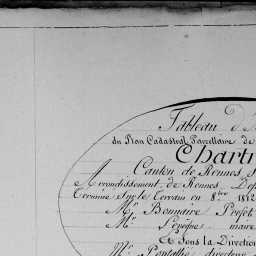 Tableau d'
du Plan Cadastral Parcellaire de
Chart
Canton de Rennes
Arrondissement de Rennes Dép
Terminé Sur le Terrain en 8bre 1812
Mr Bonnaire Préfet
Mr maire
Et Sous la Direction
Mr directeur